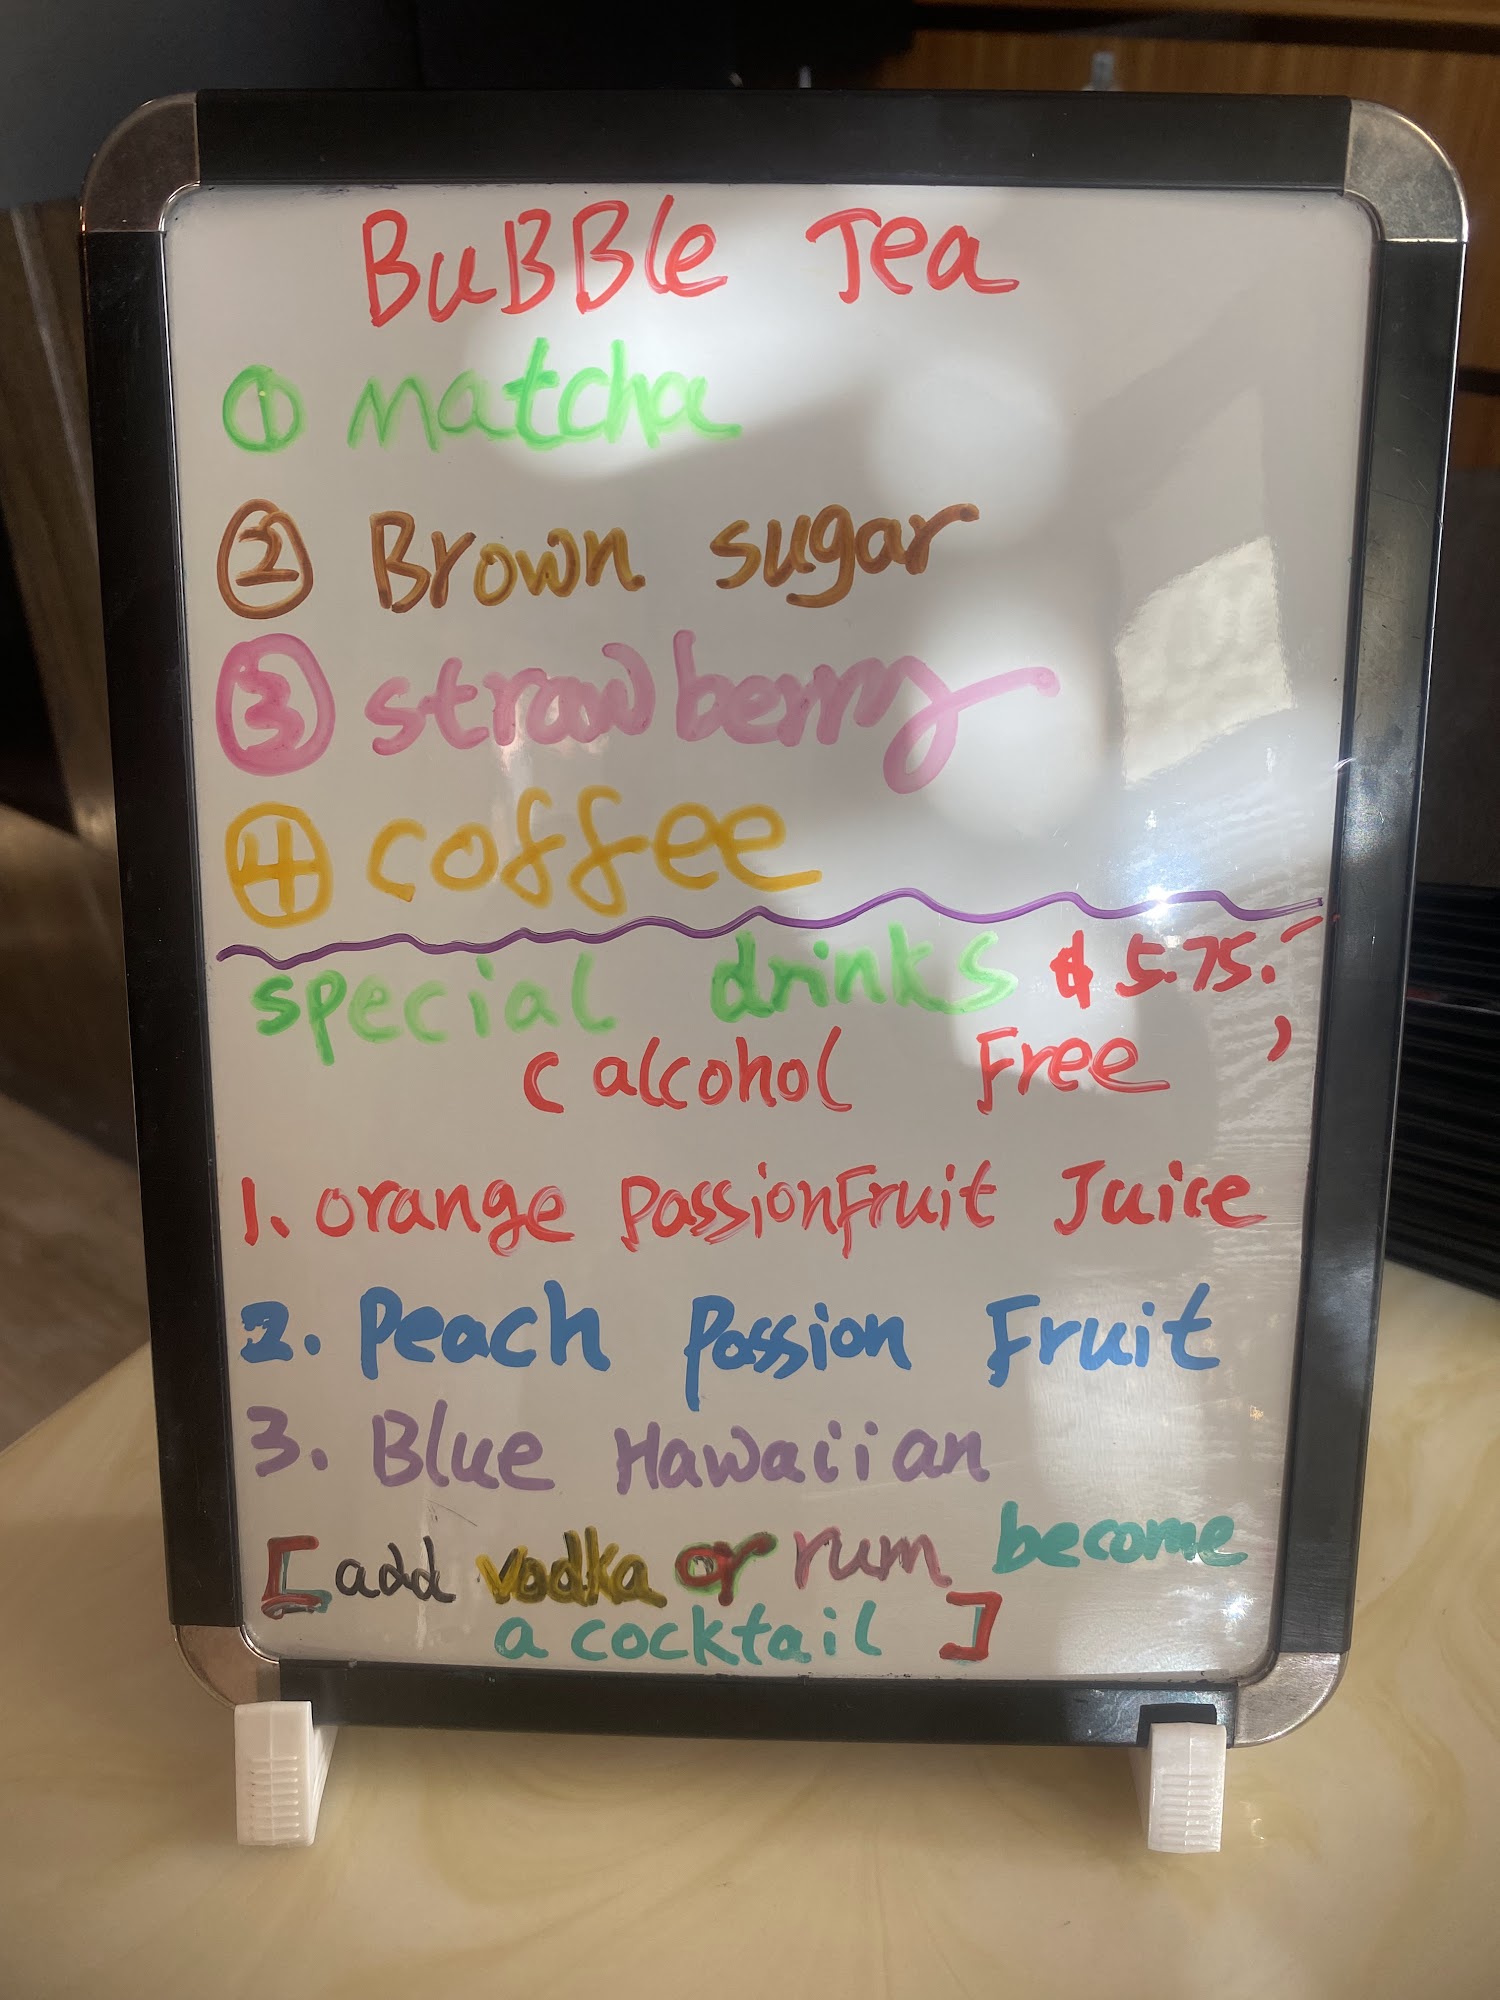 BuBBle Tea
① matcha
② Brown sugar
③ strawberry
④ coffee
special drinks $5.75.
( alcohol Free )
1. orange PassionFruit Juice
2. Peach Passion Fruit
3. Blue Hawaiian
[ add vodka or rum become
a cocktail ]